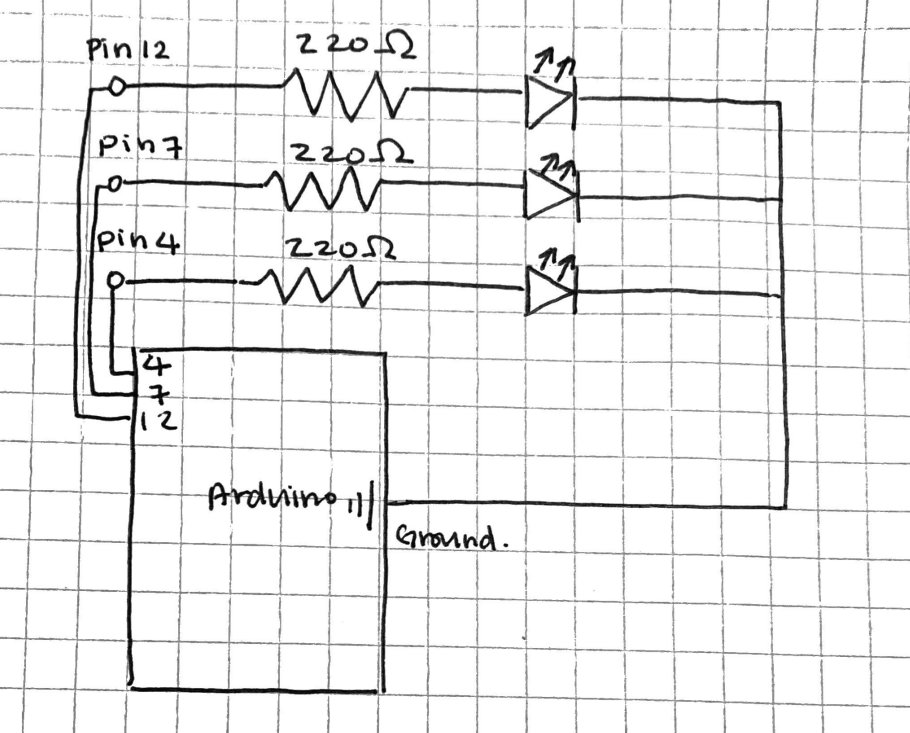 Pin 12
220Ω
Pin 7
220Ω
Pin 4
220Ω
4
7
12
Arduino
Ground.